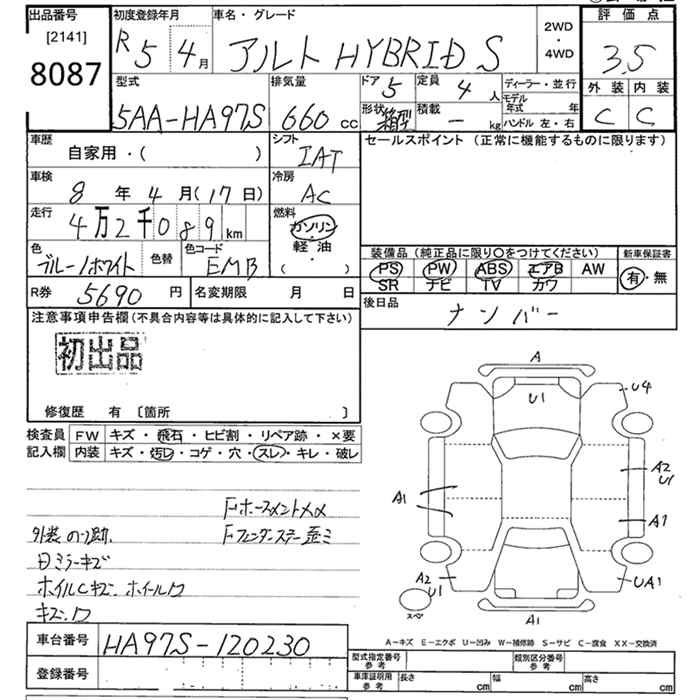 出品番号 初度登録年月 車名・グレード 2WD・4WD 評価点
[2141]
8087
R 5 4月 アルト HYBRID S 3.5
型式 排気量 ドア 5 定員 4人 ディーラー・並行 外装 内装
5AA-HA97S 660cc 形状 箱型 積載 - kg モデル年式 年 C C
ハンドル 左・右
車歴 自家用・( ) シフト IAT セールスポイント (正常に機能するものに限ります)
車検 8年4月(17日) 冷房 AC
走行 4万2千089km 燃料 ガソリン・軽油( )
装備品(純正品に限り○をつけてください) 新車保証書
色 ブルー/ホワイト 色替 色コード EMB
PS PW ABS エアB AW 有・無
SR ナビ TV カワ
R券 5690円 名変期限 月 日 後日品 ナンバー
注意事項申告欄(不具合内容等は具体的に記入して下さい)
初出品
修復歴 有 [箇所 ]
検査員 FW キズ・飛石・ヒビ割・リペア跡・×要
記入欄 内装 キズ・汚レ・コゲ・穴・スレ・キレ・破レ
A
U1
U4
A2
U1
A1
A1
A2
U1
UA1
A1
スペア
外装 のり跡
キズ
ホイルCキズ
キズ.ワ
A-キズ E-エクボ U-凹み W-補修跡 S-サビ C-腐食 XX-交換済
車台番号 HA97S-120230
登録番号
型式指定番号 参考 類別区分番号 参考
車庫証明用 参考 長さ cm 幅 cm 高さ cm